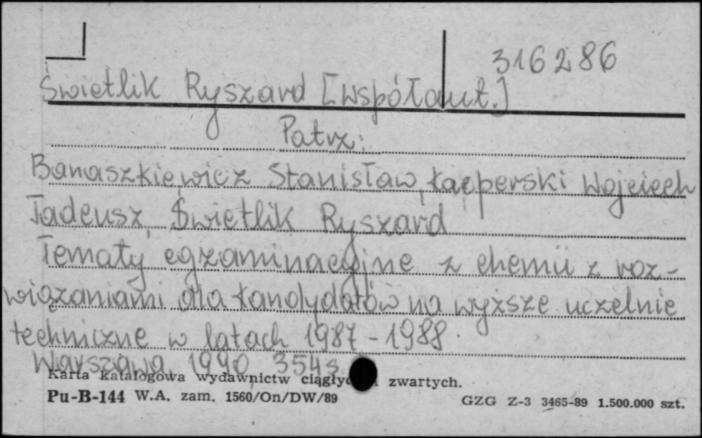 316286
Świetlik Ryszard [współaut.]
Patrz:
Banaszkiewicz Stanisław, Kacperski Wojciech
Tadeusz, Świetlik Ryszard
Tematy egzaminacyjne z chemii z roz-
wiązaniami dla kandydatów na wyższe uczelnie
techniczne w latach 1987-1988.
Warszawa 1990 354 s.
Karta katalogowa wydawnictw ciągłych zwartych.
Pu-B-144 W.A. zam. 1560/On/DW/89 GZG Z-3 3465-89 1.500.000 szt.